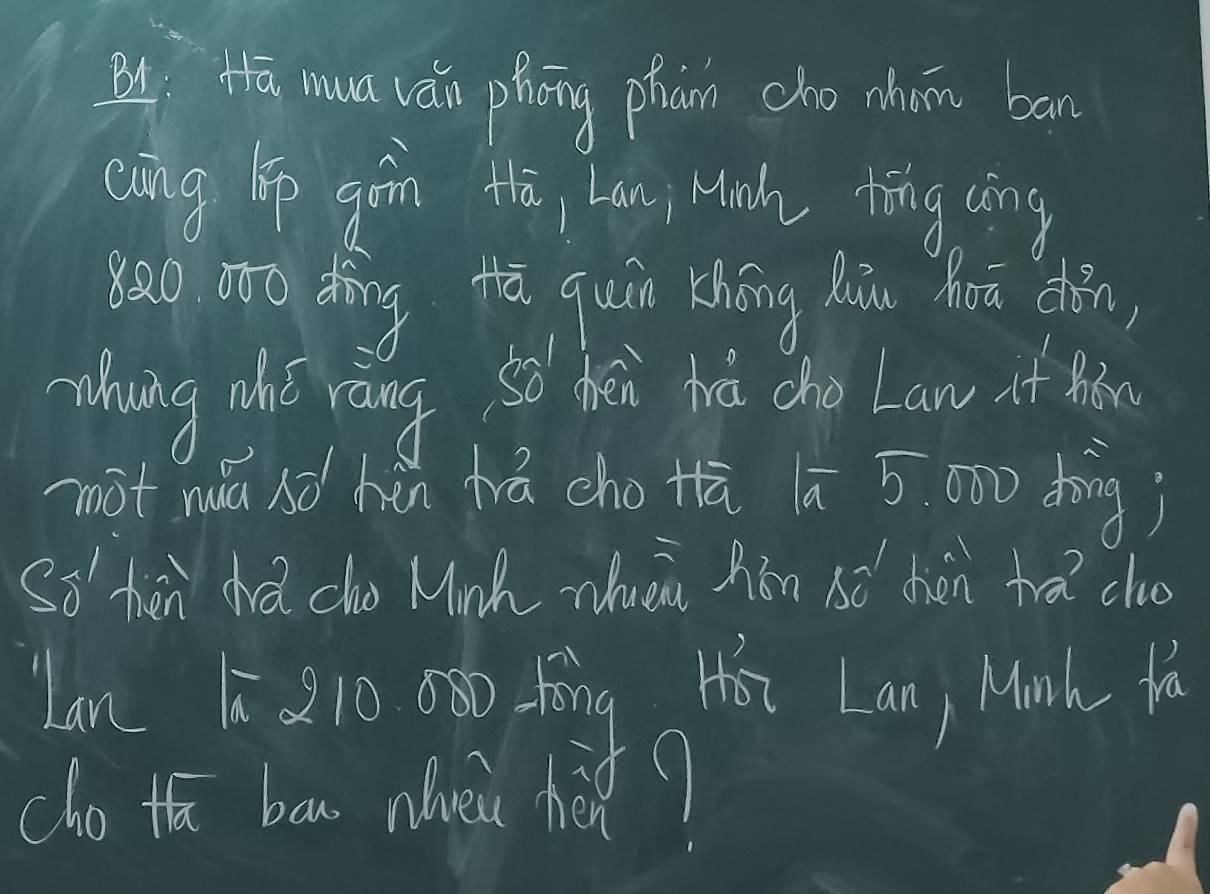 B1: Hà mua văn phòng phẩm cho nhóm bạn
cùng lớp gồm Hà, Lan, Minh tổng cộng
820.000 đồng. Hà quên không lưu hoá đơn,
nhưng nhớ rằng, số tiền trả cho Lan ít hơn
một nửa số tiền trả cho Hà là 5.000 đồng;
Số tiền trả cho Minh nhiều hơn số tiền trả cho
Lan là 210.000 đồng. Hỏi Lan, Minh trả
cho Hà bao nhiêu tiền?